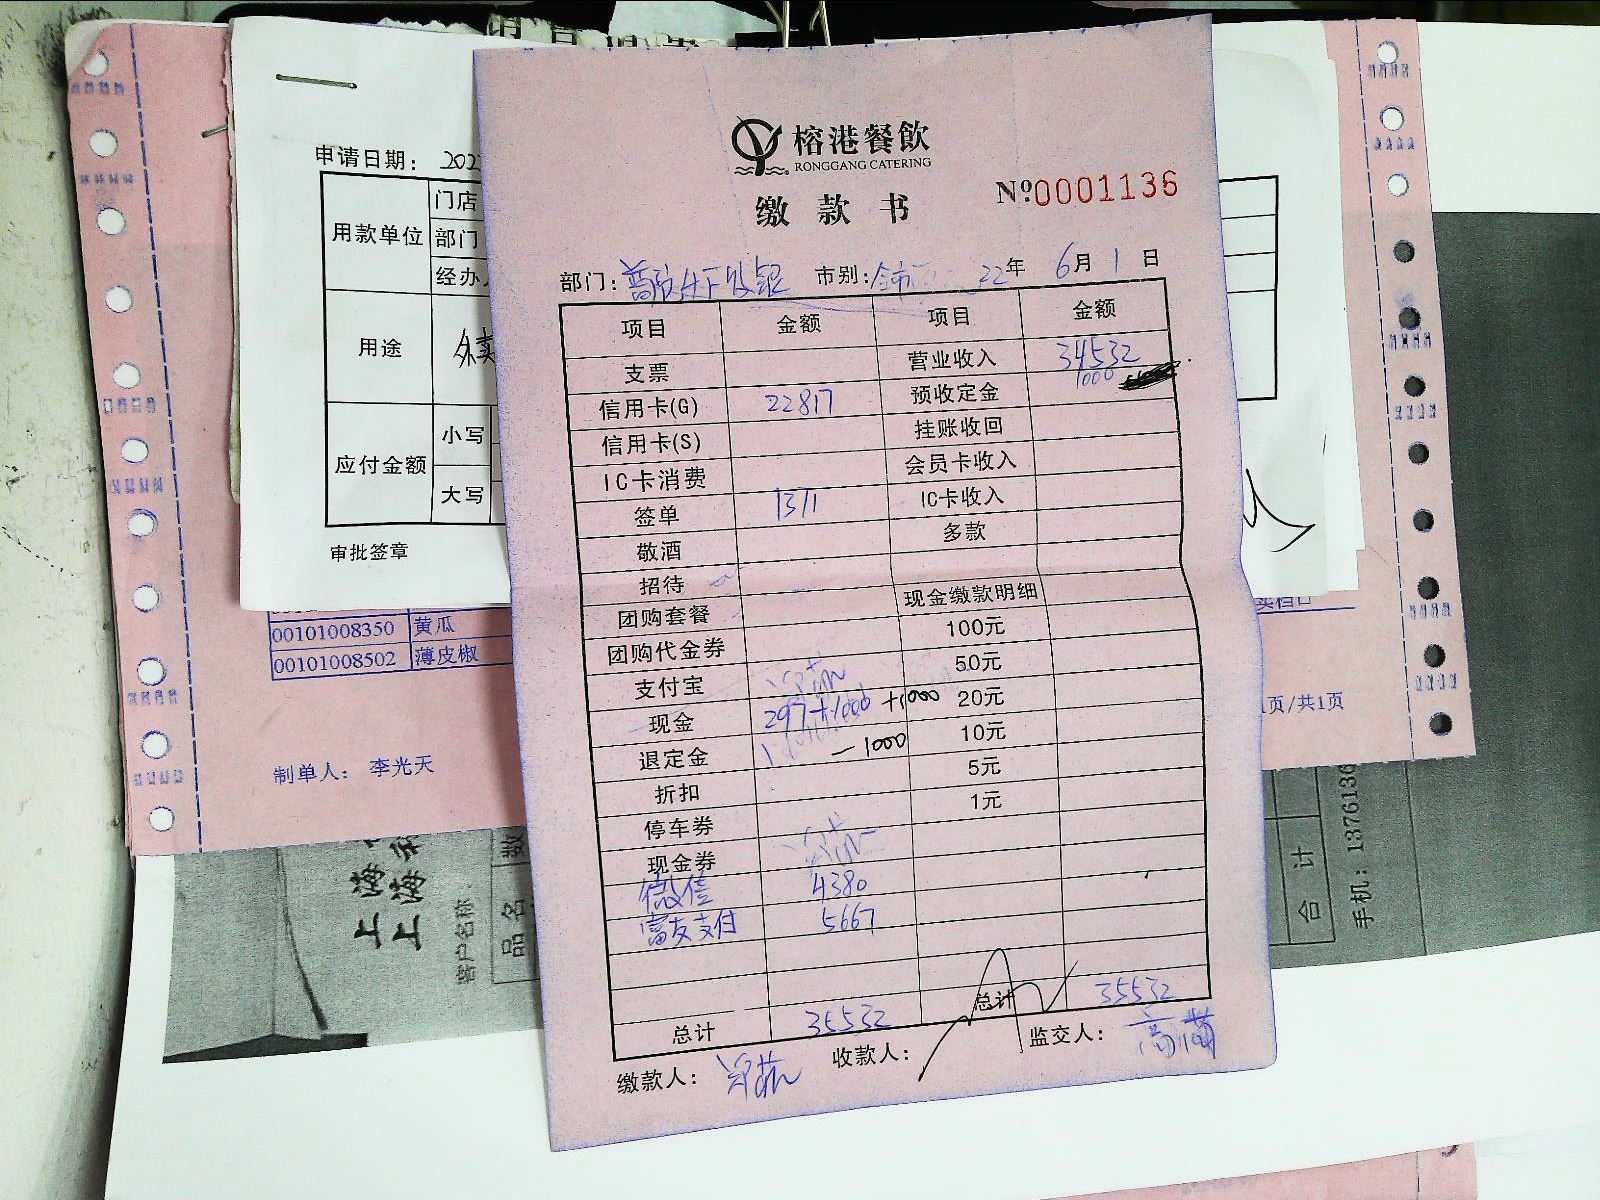 申请日期: 202
用款单位
门店
部门
经办人
用途
外卖
应付金额
小写
大写
审批签章
00101008350 黄瓜
00101008502 薄皮椒
制单人: 李光天
1页/共1页
榕港餐飲
RONGGANG CATERING
缴款书
Nº0001136
部门: 市别: 22年 6月 1日
项目 金额 项目 金额
支票 营业收入 34532
信用卡(G) 22817 预收定金 1000
信用卡(S) 挂账收回
IC卡消费 会员卡收入
签单 1371 IC卡收入
敬酒 多款
招待
团购套餐 现金缴款明细
团购代金券 100元
支付宝 50元
现金 297+1000 +1000 20元
退定金 -1000 10元
折扣 5元
停车券 1元
现金券
微信 4380
富友支付 5667
总计 35532 总计 35532
缴款人: 收款人: 监交人:
上海
上海
客户名称
品名
数
合计
手机: 1376136